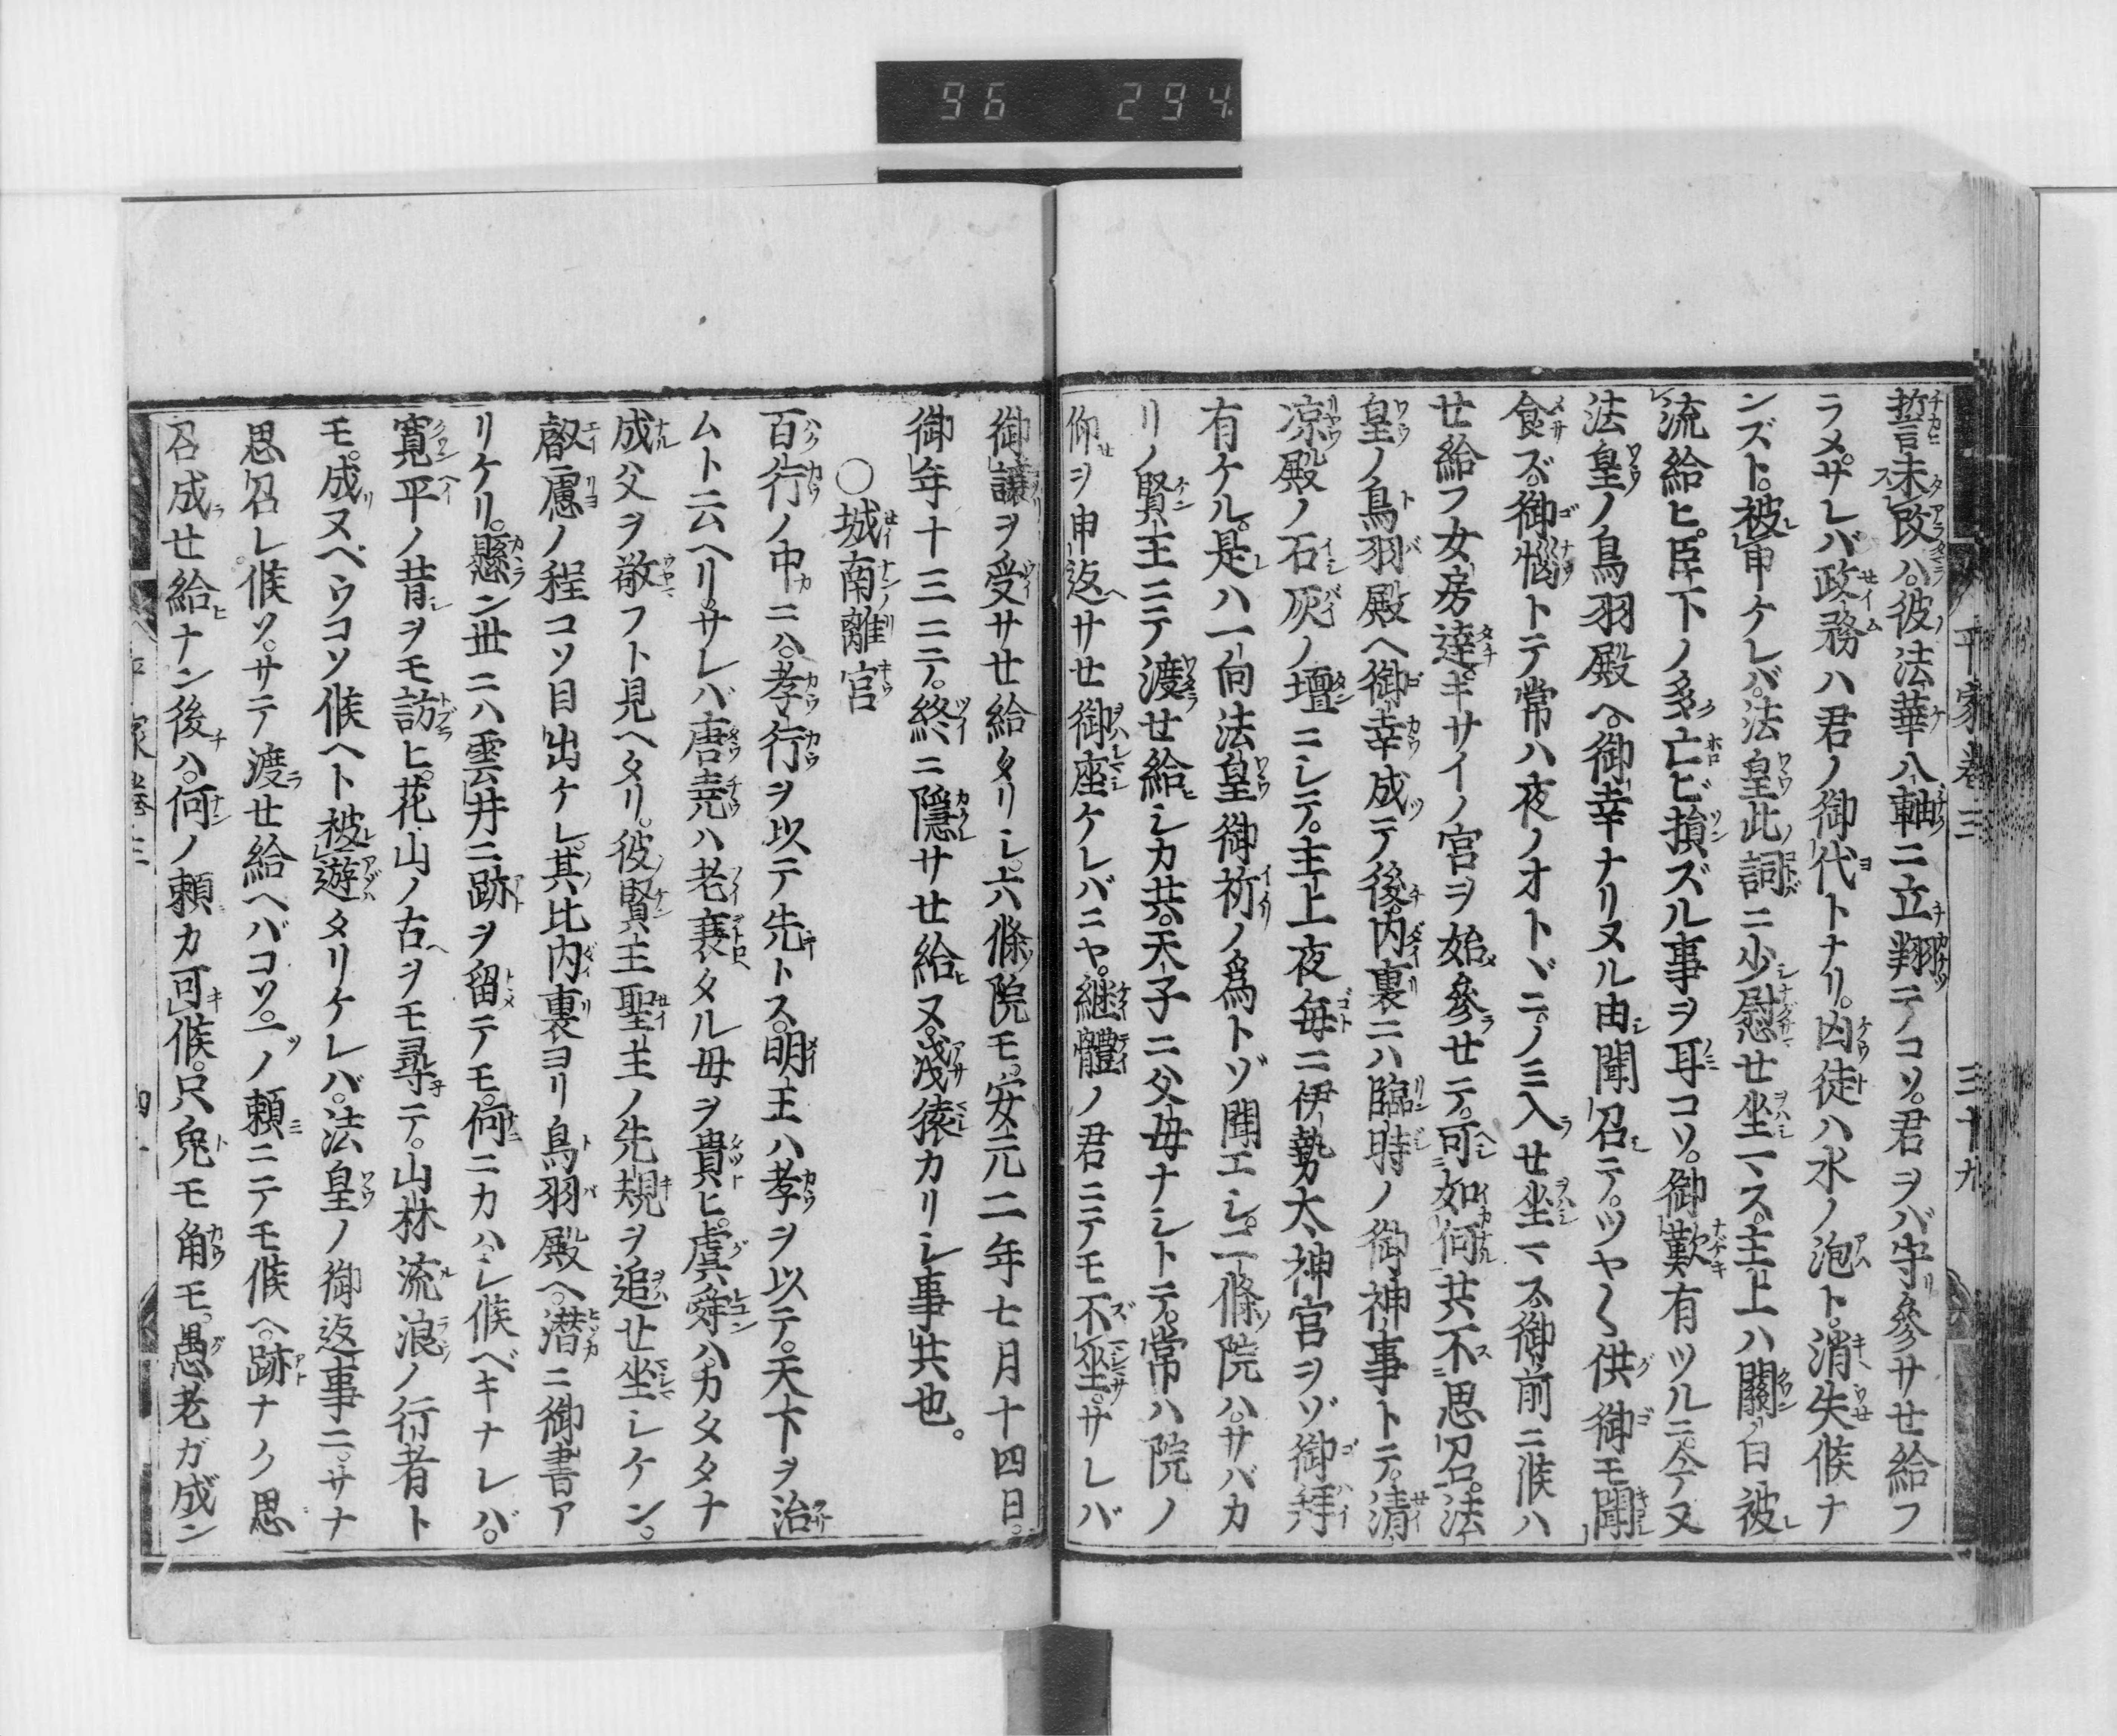 96 294
平家卷三 三十九
誓未改ハ。彼法華八軸ニ立翔テノコソ。君ヲバ守リ參サせ給フ
ラメ。サレバ政務ハ君ノ御代トナリ。凶徒ハ水ノ泡ト。消失候ナ
ンズト。被申ケレバ。法皇此詞ニ少慰せ坐マス。主上ハ關白被
流給ヒ。臣下ノ多亡ビ損ズル事ヲ耳コソ。御歎有ツルニ。今又
法皇ノ鳥羽殿ヘ。御幸ナリヌル由聞召テ。ツヤ〱供御モ聞
食ズ。御惱トテ常ハ夜ノオトヾニノミ入せ坐マス。御前ニ候ハ
せ給フ女房達。キサイノ宮ヲ始參せテ。可如何共不思召。法
皇ノ鳥羽殿ヘ御幸成テ後。内裏ニハ臨時ノ御神事トテ。清
凉殿ノ石灰ノ壇ニシテ。主上夜毎ニ伊勢大神宮ヲゾ御拜
有ケル。是ハ一向法皇御祈ノ爲トゾ聞エシ。二條院ハ。サバカ
リノ賢王ニテ渡せ給シカ共。天子ニ父母ナシトテ。常ハ院ノ
仰ヲ申返サせ御座ケレバニヤ。繼體ノ君ニテモ不坐。サレバ
御讓ヲ受サせ給タリシ。六條院モ。安元二年七月十四日。
御年十三ニテ。終ニ隱サせ給ヌ。淺猿カリシ事共也。
〇城南離宮
百行ノ中ニハ。孝行ヲ以テ先トス。明王ハ孝ヲ以テ。天下ヲ治
ムト云ヘリ。サレバ唐堯ハ老衰タル母ヲ貴ヒ。虞舜ハカタクナ
成父ヲ敬フト見ヘタリ。彼賢王聖主ノ先規ヲ追せ坐シケン。
叡慮ノ程コソ目出ケレ。其比内裏ヨリ鳥羽殿ヘ。潜ニ御書ア
リケリ。懸ン世ニハ雲井ニ跡ヲ留テモ。何ニカハシ候ベキナレバ。
寛平ノ昔ヲモ訪ヒ。花山ノ古ヲモ尋テ。山林流浪ノ行者ト
モ。成ヌベウコソ候ヘト被遊タリケレバ。法皇ノ御返事ニ。サナ
思召レ候ソ。サテ渡せ給ヘバコソ。一ノ頼ニテモ候ヘ。跡ナク思
召成せ給ナン後ハ。何ノ頼カ可候。只兔モ角モ。愚老ガ成ン
平家卷三 四十